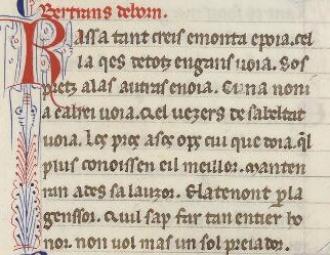 Bertrans deborn.
Rassa tant creis emonta epoia. cel
la qes detotz engans uoia. Sos
pretz alas autras enoia. Cuna noni
a cabrei uoia. Qel uezers de sabeltat
uoia. Los pros asos ops cui que coia. q̃l
plus conoissen eil meillor. Manten
ran ades sa lauzor. Elatenont p̱la
genssor. Quil sap far tan entier ho
nor. non uol mas un sol preiador.